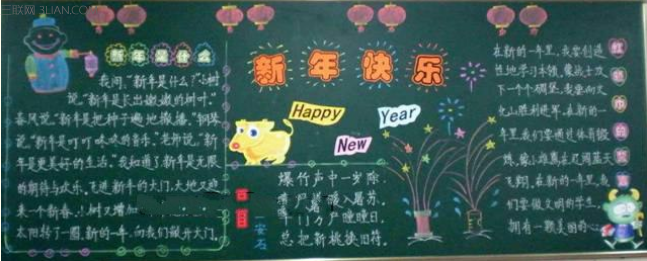 三联网 3LIAN.COM
新年是什么
我问，"新年是什么？"小树
说，"新年是长出嫩嫩的树叶。"
春风说，"新年是把种子遍地撒播。"钢琴
说，"新年是叮叮咚咚的音乐。"老师说，"新
年是更美好的生活。"我知道了新年是无限
的期待与欢乐，飞进新年的大门，大地又迎
来一个新春，小树又增加
太阳转了一圈，新的一年，向我们敞开大门。
新年快乐
Happy
New
Year
安石
爆竹声中一岁除
暖入屠苏。
户曈曈日
总把新桃换旧符。
红领巾的
在新的一年里，我
性地学习本领，像战士攻
下一个个碉堡，
火山胜利进军，在新的一
年里，我们要通过体育锻
炼，像小雄鹰在辽阔蓝天
飞翔，在新的一年里，我
们要做文明的学生，
拥有一颗美丽的